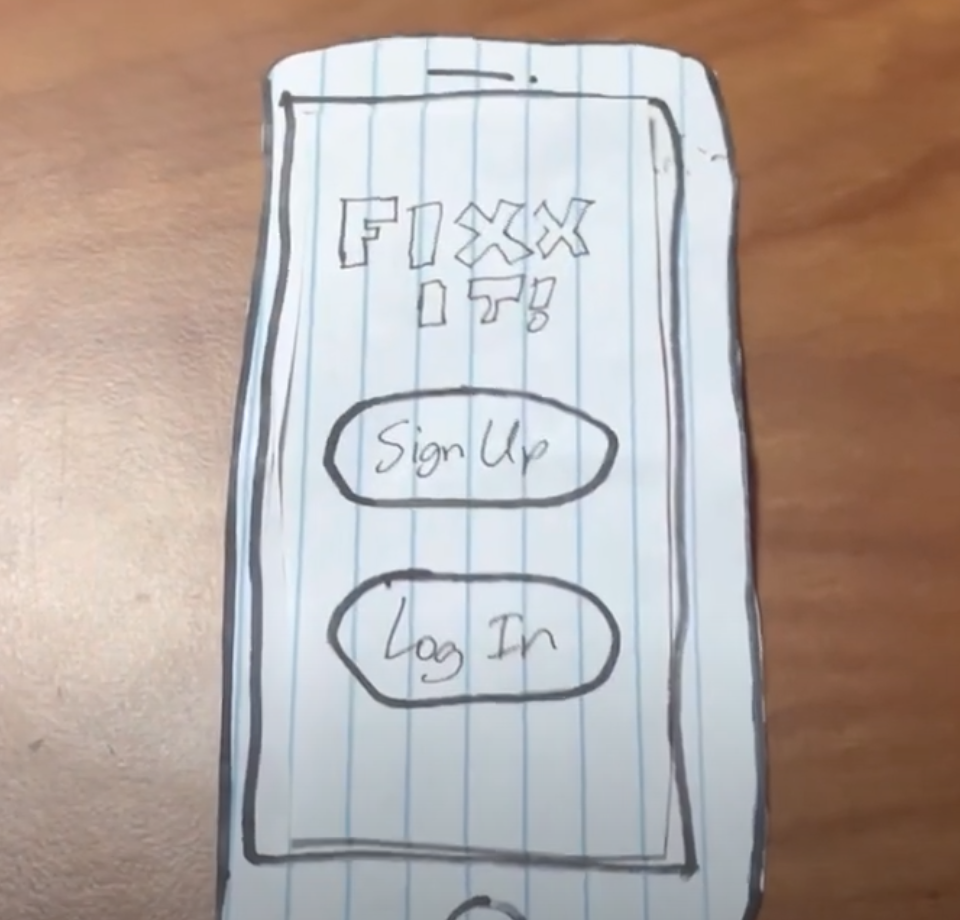 FIXX
IT!
Sign Up
Log In